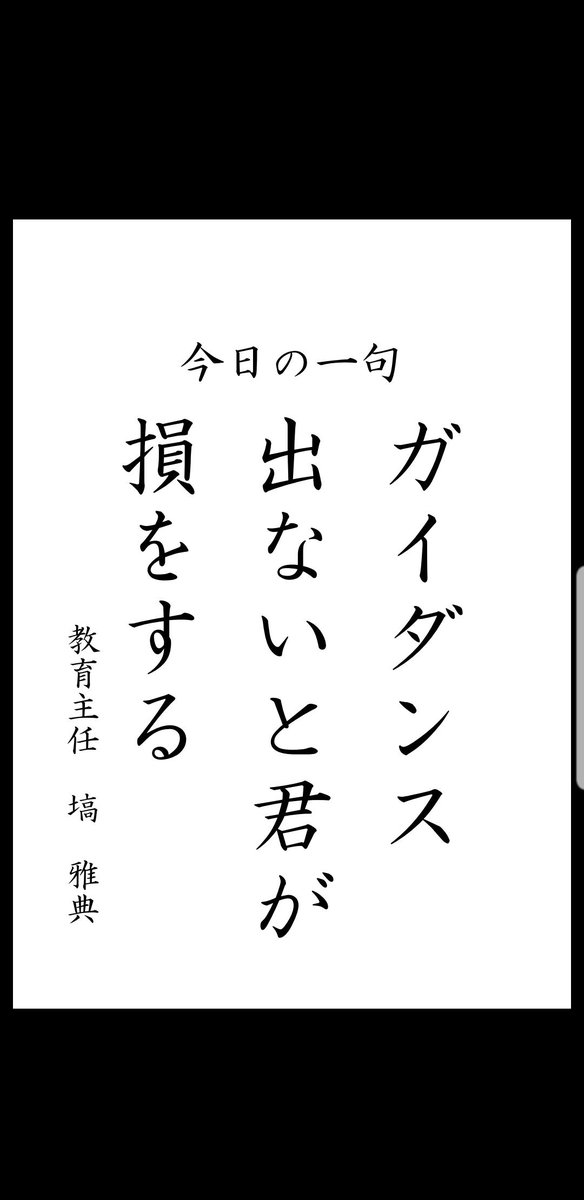 今日の一句
ガイダンス
出ないと君が
損をする
教育主任 塙 雅典